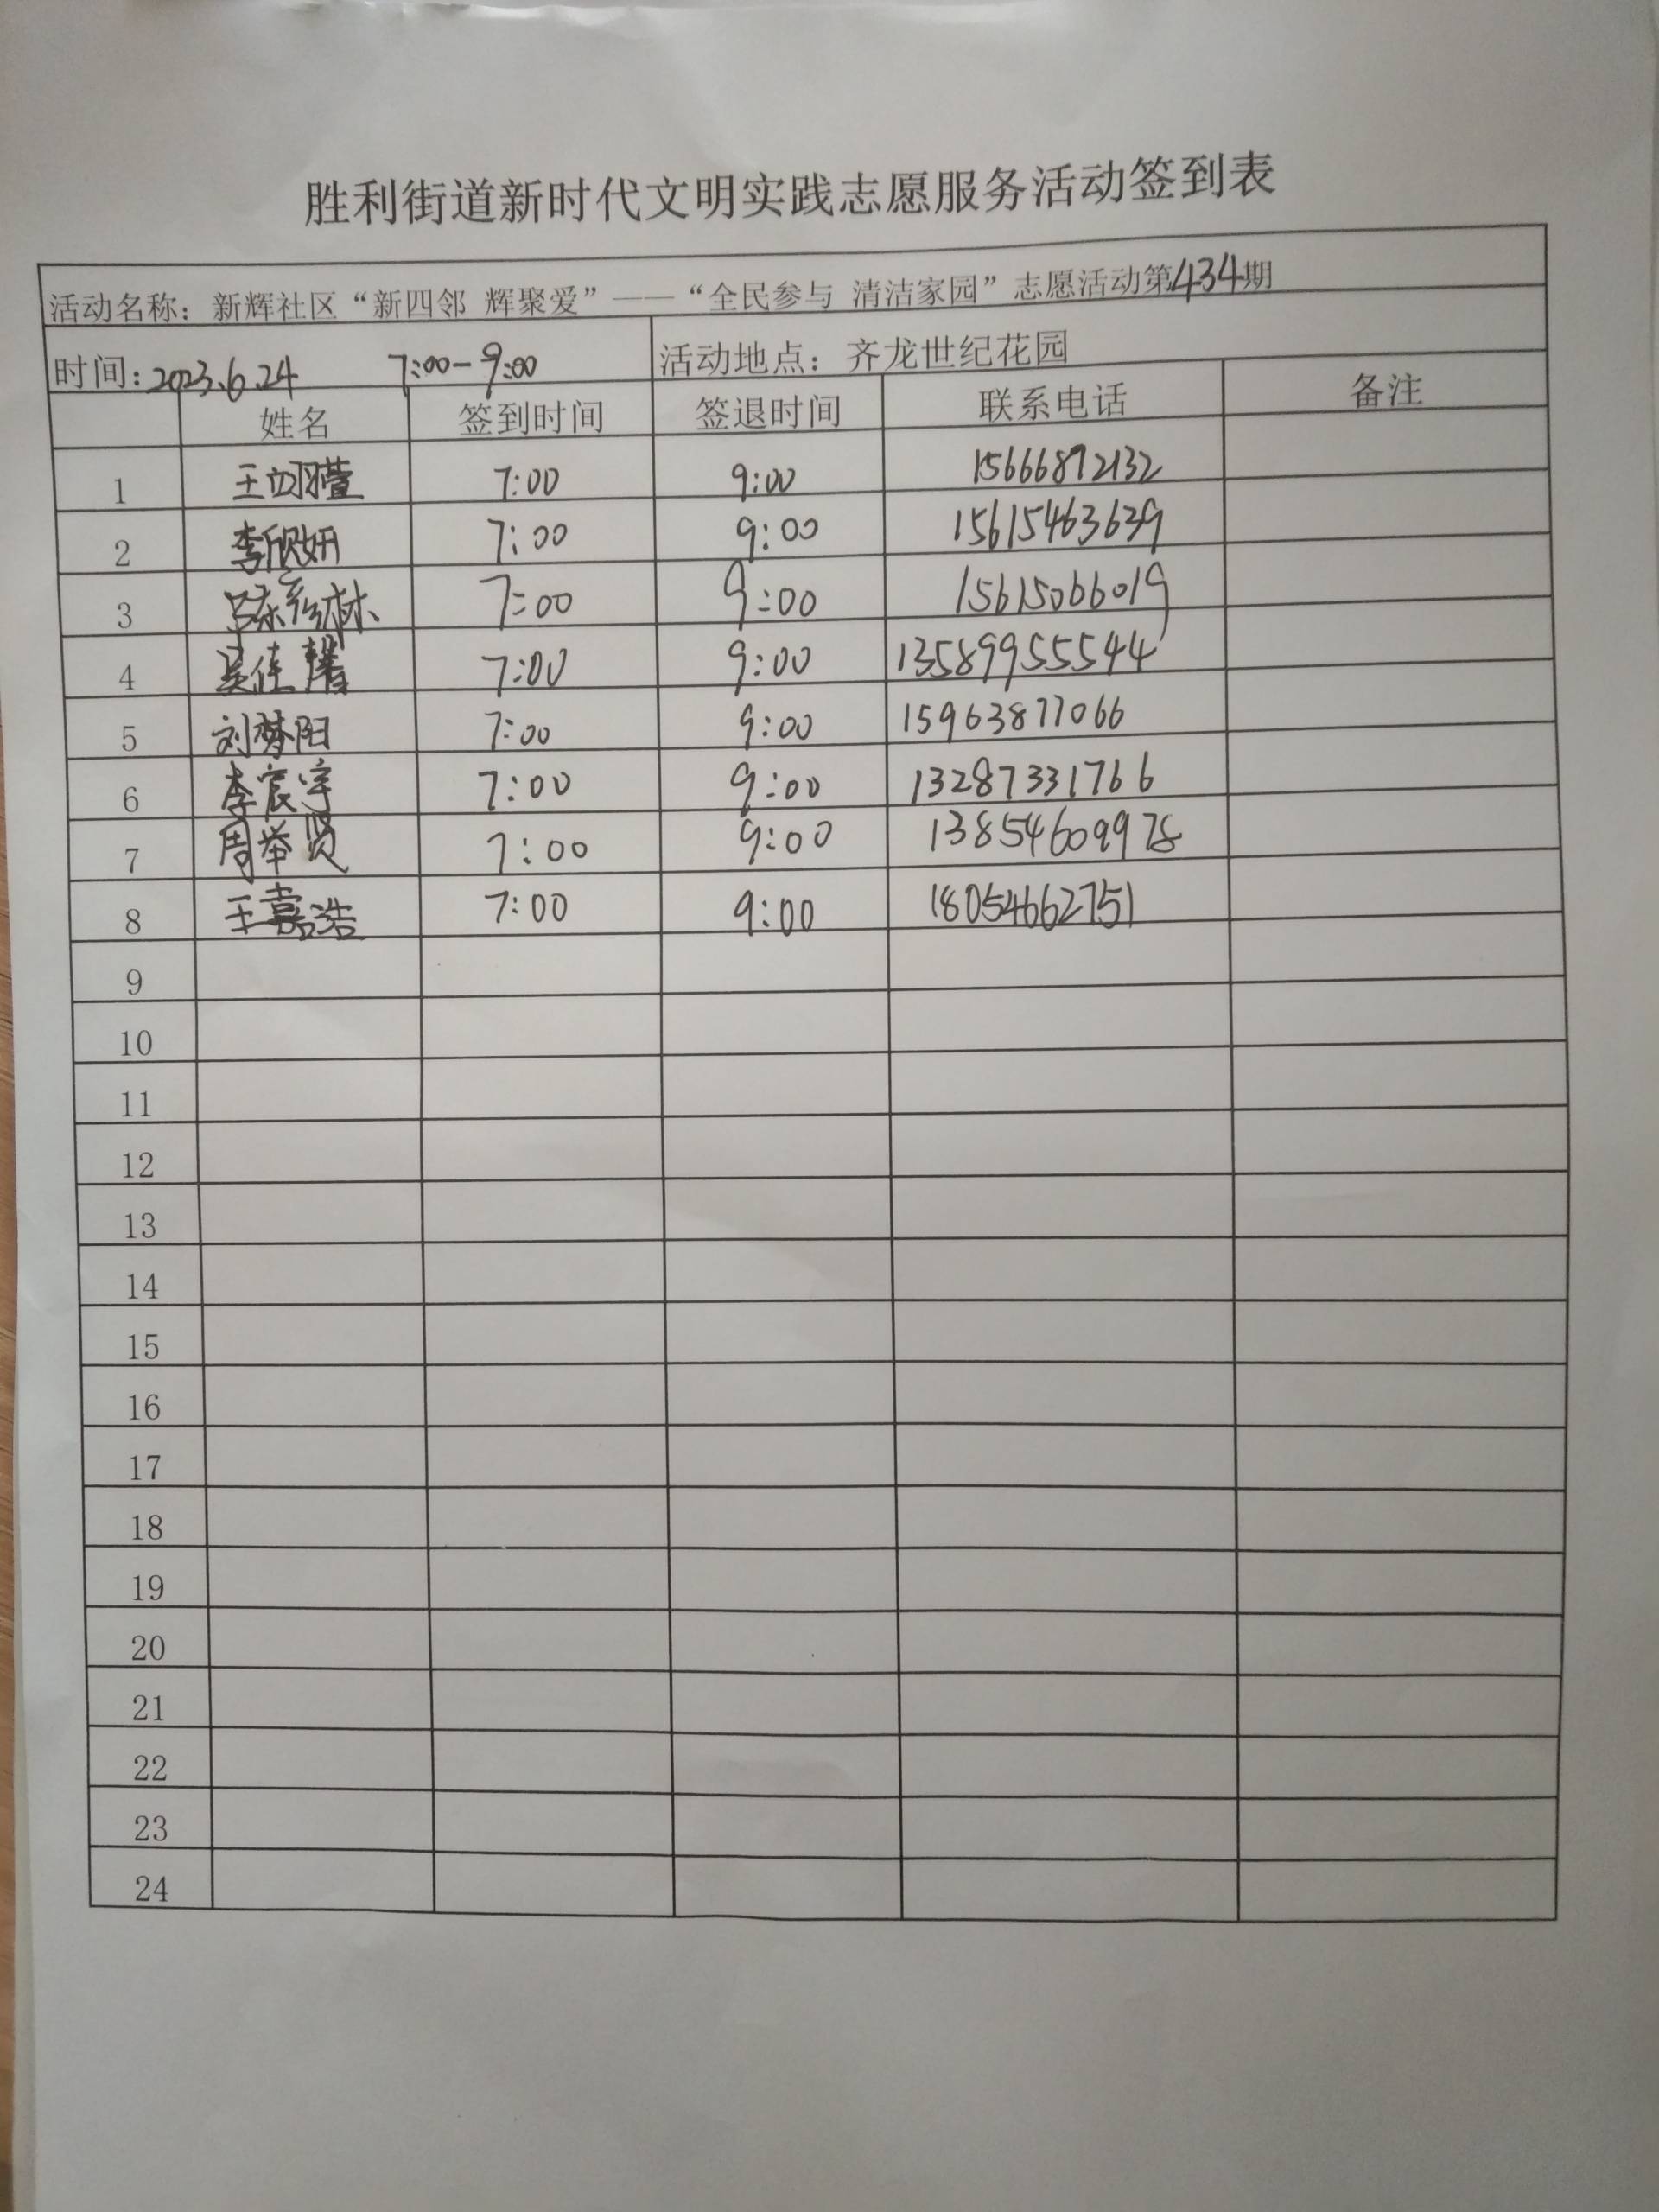 胜利街道新时代文明实践志愿服务活动签到表
活动名称：新辉社区“新四邻 辉聚爱”——“全民参与 清洁家园”志愿活动第434期
时间：2023.6.24 7:00-9:00 活动地点：齐龙世纪花园
姓名 签到时间 签退时间 联系电话 备注
1 王 7:00 9:00 15666892132
2 李欣妍 7:00 9:00 15615463639
3 7:00 9:00 15615066019
4 吴佳馨 7:00 9:00 13589955544
5 刘梦阳 7:00 9:00 15963877066
6 李宸宇 7:00 9:00 13287331766
7 周举贤 7:00 9:00 13854609978
8 王嘉浩 7:00 9:00 18054662751
9
10
11
12
13
14
15
16
17
18
19
20
21
22
23
24